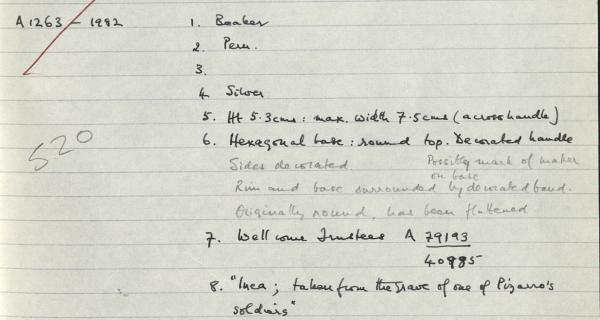 A1263 - 1982
1. Beaker
2. Peru.
3.
4. Silver
5. Ht 5.3cms : max. width 7.5cms (across handle)
6. Hexagonal base : round top. Decorated handle
520
Sides decorated. Possibly mark of maker
on base
Rim and base surrounded by decorated band.
Originally round, has been flattened
7. Wellcome Trustees A 79193
40985
8. "Inca ; taken from the grave of one of Pizarro's
soldiers"